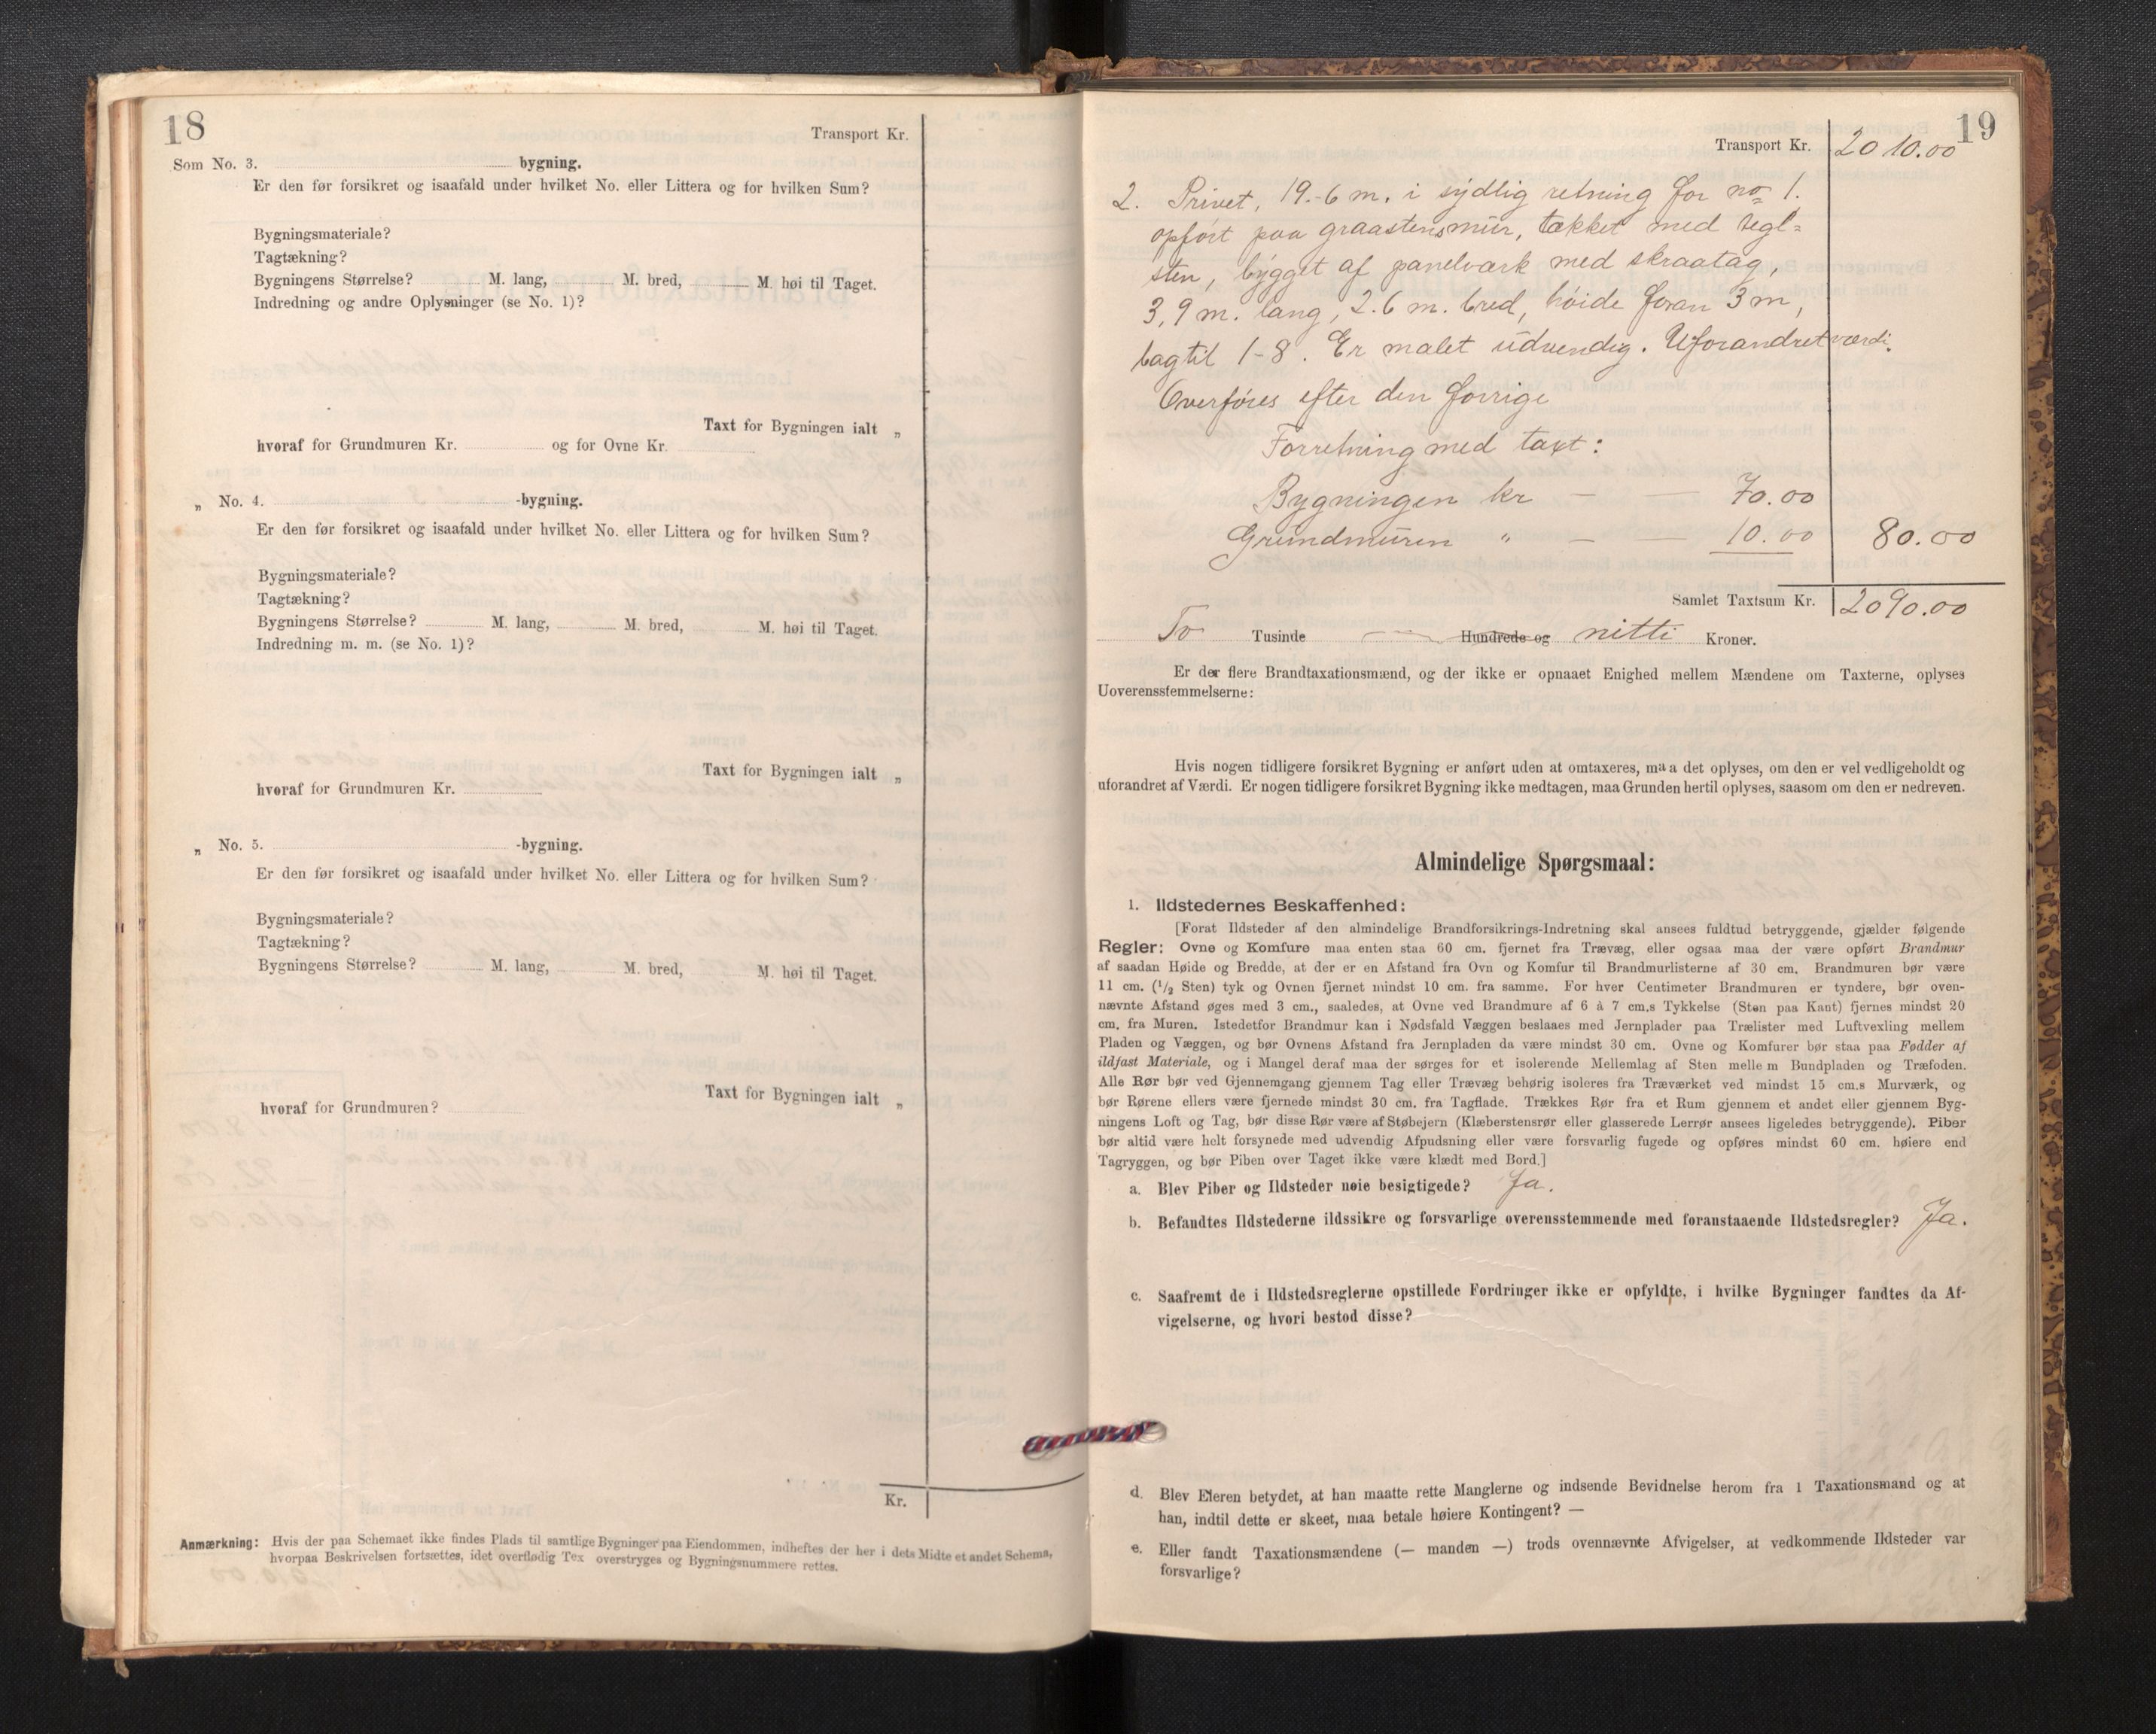 18
Transport Kr.
Som No. 3. bygning.
Er den før forsikret og isaafald under hvilket No. eller Littera og for hvilken Sum?
Bygningsmateriale?
Tagtækning?
Bygningens Størrelse? M. lang, M. bred, M. høi til Taget.
Indredning og andre Oplysninger (se No. 1)?
Taxt for Bygningen ialt „
hvoraf for Grundmuren Kr. og for Ovne Kr.
„ No. 4. -bygning.
Er den før forsikret og isaafald under hvilket No. eller Littera og for hvilken Sum?
Bygningsmateriale?
Tagtækning?
Bygningens Størrelse? M. lang, M. bred, M. høi til Taget.
Indredning m. m. (se No. 1)?
Taxt for Bygningen ialt „
hvoraf for Grundmuren Kr.
„ No. 5. -bygning.
Er den før forsikret og isaafald under hvilket No. eller Littera og for hvilken Sum?
Bygningsmateriale?
Tagtækning?
Bygningens Størrelse? M. lang, M. bred, M. høi til Taget.
Taxt for Bygningen ialt „
hvoraf for Grundmuren?
Kr.
Anmærkning: Hvis der paa Schemaet ikke findes Plads til samtlige Bygninger paa Eiendommen, indheftes der her i dets Midte et andet Schema,
hvorpaa Beskrivelsen fortsættes, idet overflødig Tex overstryges og Bygningsnummere rettes.
19
Transport Kr. 2010.00
2. Privet, 19.-6 m. i sydlig retning for no 1.
opført paa graastensmur, tækket med tegl=
sten, bygget af panelværk med skraatag,
3,9 m. lang, 2.6 m. bred, høide foran 3 m,
bagtil 1-8. Er malet udvendig. Uforandret værdi.
Overføres efter den forrige
Forretning med taxt:
Bygningen kr — — 70.00
Grundmuren „ — — 10.00 80.00
Samlet Taxtsum Kr. 2090.00
To Tusinde — Hundrede og nitti Kroner.
Er der flere Brandtaxationsmænd, og der ikke er opnaaet Enighed mellem Mændene om Taxterne, oplyses
Uoverensstemmelserne:
Hvis nogen tidligere forsikret Bygning er anført uden at omtaxeres, maa det oplyses, om den er vel vedligeholdt og
uforandret af Værdi. Er nogen tidligere forsikret Bygning ikke medtagen, maa Grunden hertil oplyses, saasom om den er nedreven.
Almindelige Spørgsmaal:
1. Ildstedernes Beskaffenhed:
[Forat Ildsteder af den almindelige Brandforsikrings-Indretning skal ansees fuldtud betryggende, gjælder følgende
Regler: Ovne og Komfure maa enten staa 60 cm. fjernet fra Trævæg, eller ogsaa maa der være opført Brandmur
af saadan Høide og Bredde, at der er en Afstand fra Ovn og Komfur til Brandmurlisterne af 30 cm. Brandmuren bør være
11 cm. (1/2 Sten) tyk og Ovnen fjernet mindst 10 cm. fra samme. For hver Centimeter Brandmuren er tyndere, bør oven-
nævnte Afstand øges med 3 cm., saaledes, at Ovne ved Brandmure af 6 à 7 cm.s Tykkelse (Sten paa Kant) fjernes mindst 20
cm. fra Muren. Istedetfor Brandmur kan i Nødsfald Væggen beslaaes med Jernplader paa Trælister med Luftvexling mellem
Pladen og Væggen, og bør Ovnens Afstand fra Jernpladen da være mindst 30 cm. Ovne og Komfurer bør staa paa Fødder af
ildfast Materiale, og i Mangel deraf maa der sørges for et isolerende Mellemlag af Sten mellem Bundpladen og Træfoden.
Alle Rør bør ved Gjennemgang gjennem Tag eller Trævæg behørig isoleres fra Træværket ved mindst 15 cm.s Murværk, og
bør Rørene ellers være fjernede mindst 30 cm. fra Tagflade. Trækkes Rør fra et Rum gjennem et andet eller gjennem Byg-
ningens Loft og Tag, bør disse Rør være af Støbejern (Klæberstensrør eller glasserede Lerrør ansees ligeledes betryggende). Piber
bør altid være helt forsynede med udvendig Afpudsning eller være forsvarlig fugede og opføres mindst 60 cm. høiere end
Tagryggen, og bør Piben over Taget ikke være klædt med Bord.]
a. Blev Piber og Ildsteder nøie besigtigede? Ja.
b. Befandtes Ildstederne ildssikre og forsvarlige overensstemmende med foranstaaende Ildstedsregler? Ja.
c. Saafremt de i Ildstedsreglerne opstillede Fordringer ikke er opfyldte, i hvilke Bygninger fandtes da Af-
vigelserne, og hvori bestod disse?
d. Blev Eieren betydet, at han maatte rette Manglerne og indsende Bevidnelse herom fra 1 Taxationsmand og at
han, indtil dette er skeet, maa betale høiere Kontingent? —
e. Eller fandt Taxationsmændene (— manden —) trods ovennævnte Afvigelser, at vedkommende Ildsteder var
forsvarlige?